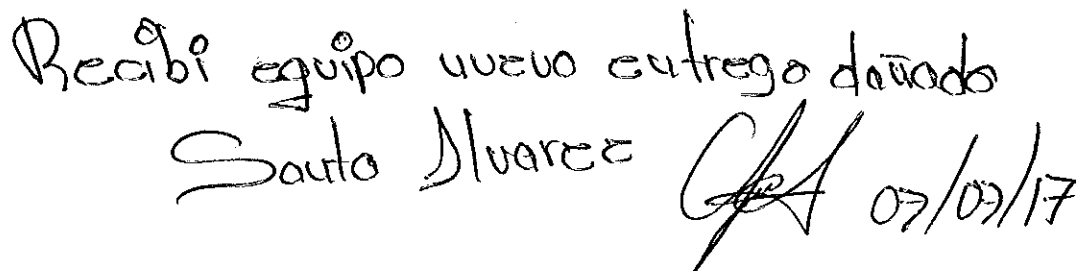 Recibi equipo nuevo entrego dañado
Santo Alvarez 07/07/17